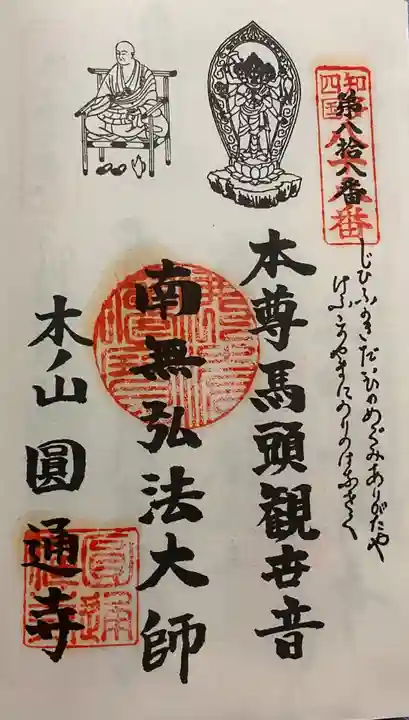 知多
四国
第八拾八番
じひふかきだいひのめぐみありがたや
けふこのやまにのりのはなさく
本尊馬頭観世音
南無弘法大師
木ノ山 圓通寺